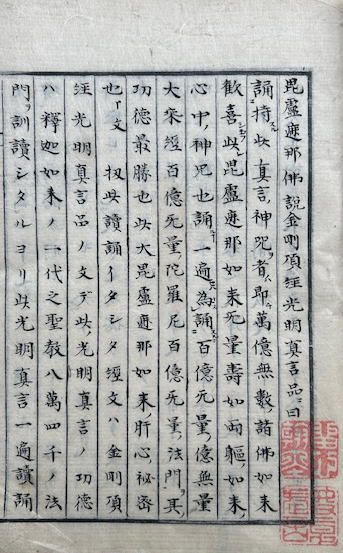 毘盧遮那佛說金剛項経光明真言品ニ曰
誦持此真言神咒者即萬億無數諸佛如来
歡喜此毘盧遮那如来无量壽如両軀如来
心中神咒也誦一遍為誦百億无量億無量
大乗経百億无量陀羅尼百億无量法門其
功德最勝也此大毘盧遮那如来肝心秘密
也ト文扨此讀誦イタシタ経文ハ金剛項
経光明真言品ノ文デ此光明真言ノ功德
ハ釋迦如来ノ一代之聖教八萬四千ノ法
門ヲ訓讀シタルヨリ此光明真言一遍讀誦